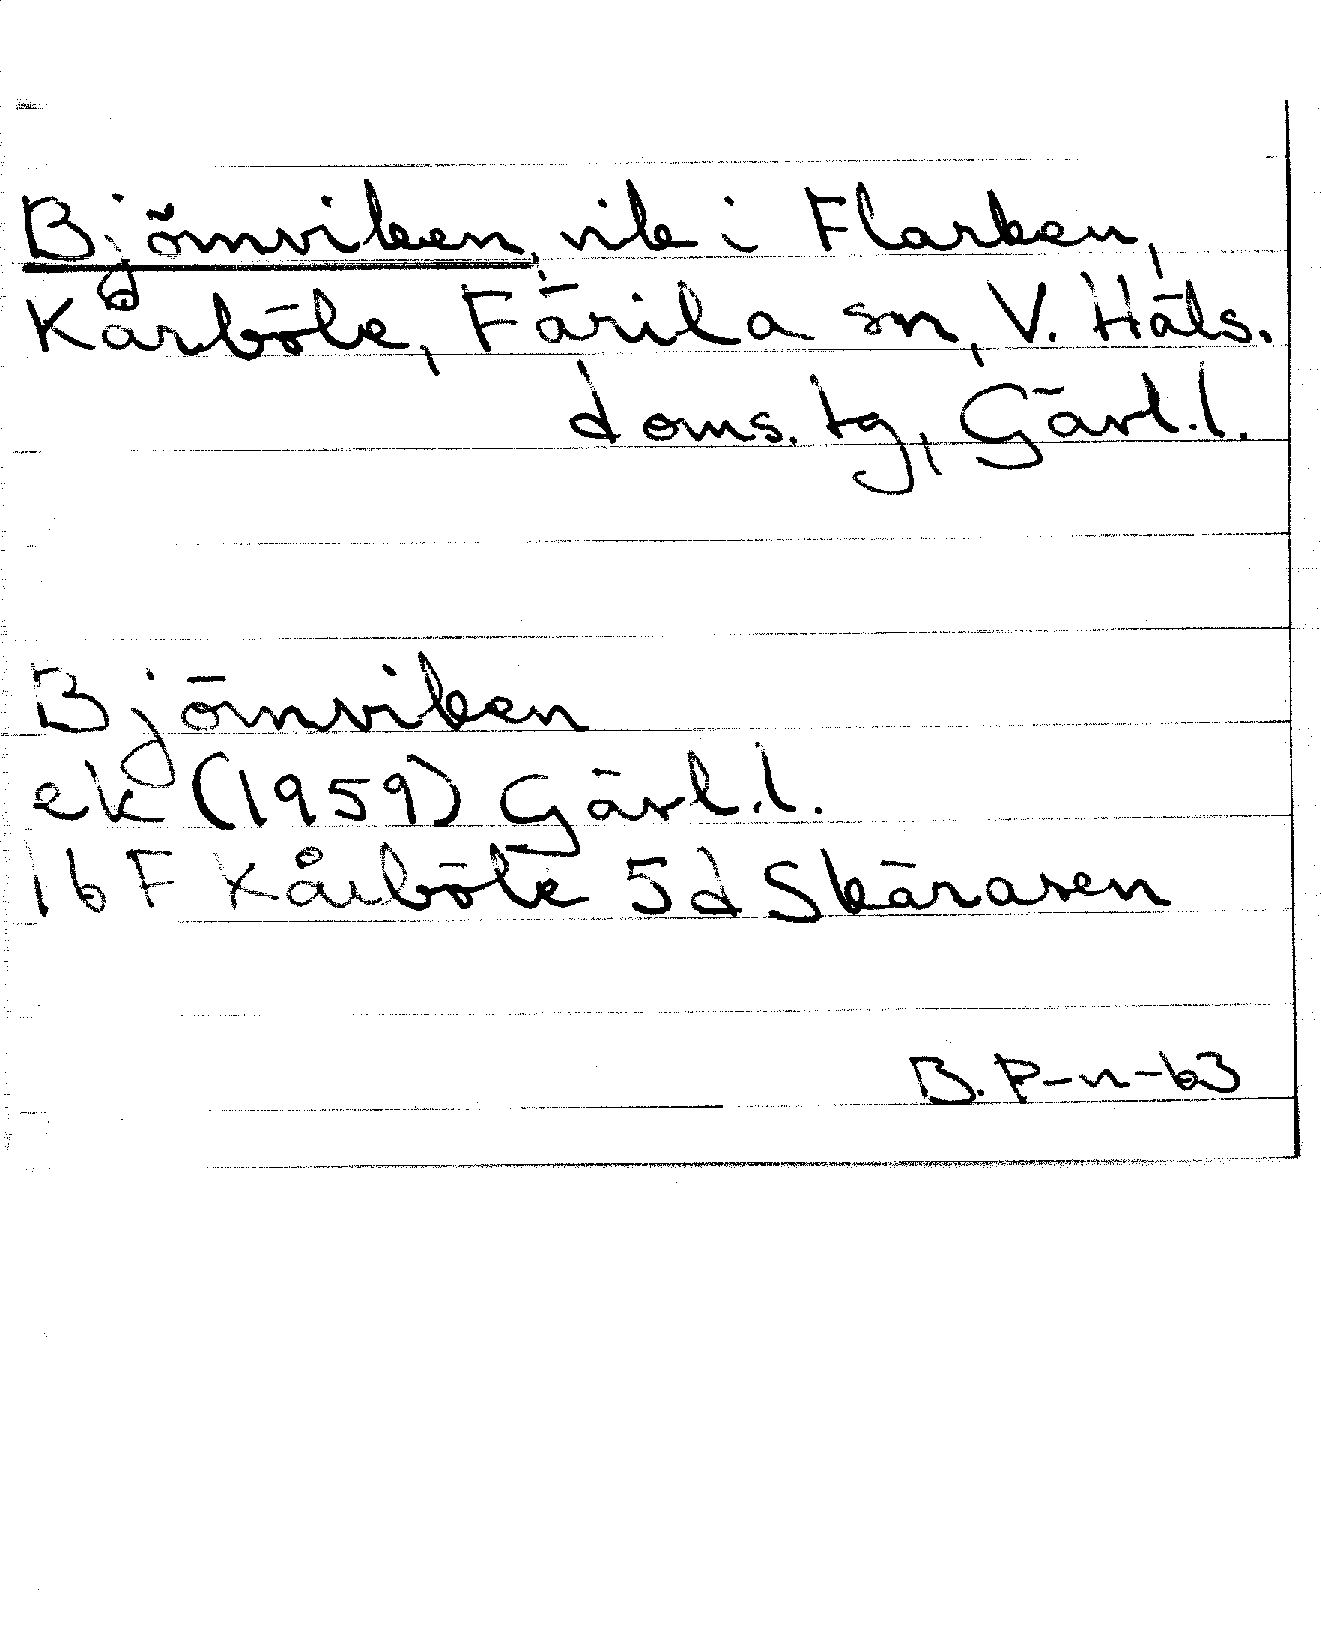 Björnviken, vik i Flarken,
Kårböle, Färila sn, V. Häls.
doms. tg, Gävl.l.
Björnviken
ek (1959) Gävl.l.
16 F Kårböle 5d Skärasen
B. P-n-63